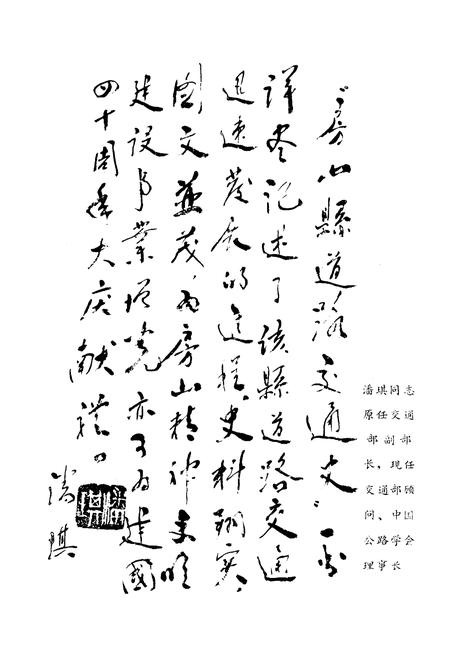 《房山縣道路交通史》一书
详尽记述了该縣道路交通
迅速发展的过程，史料翔实，
图文並茂，为房山精神文明
建设事业增光，亦可为建國
四十周年大庆献礼。
潘琪
潘琪同志
原任交通
部副部
长，现任
交通部顾
问、中国
公路学会
理事长